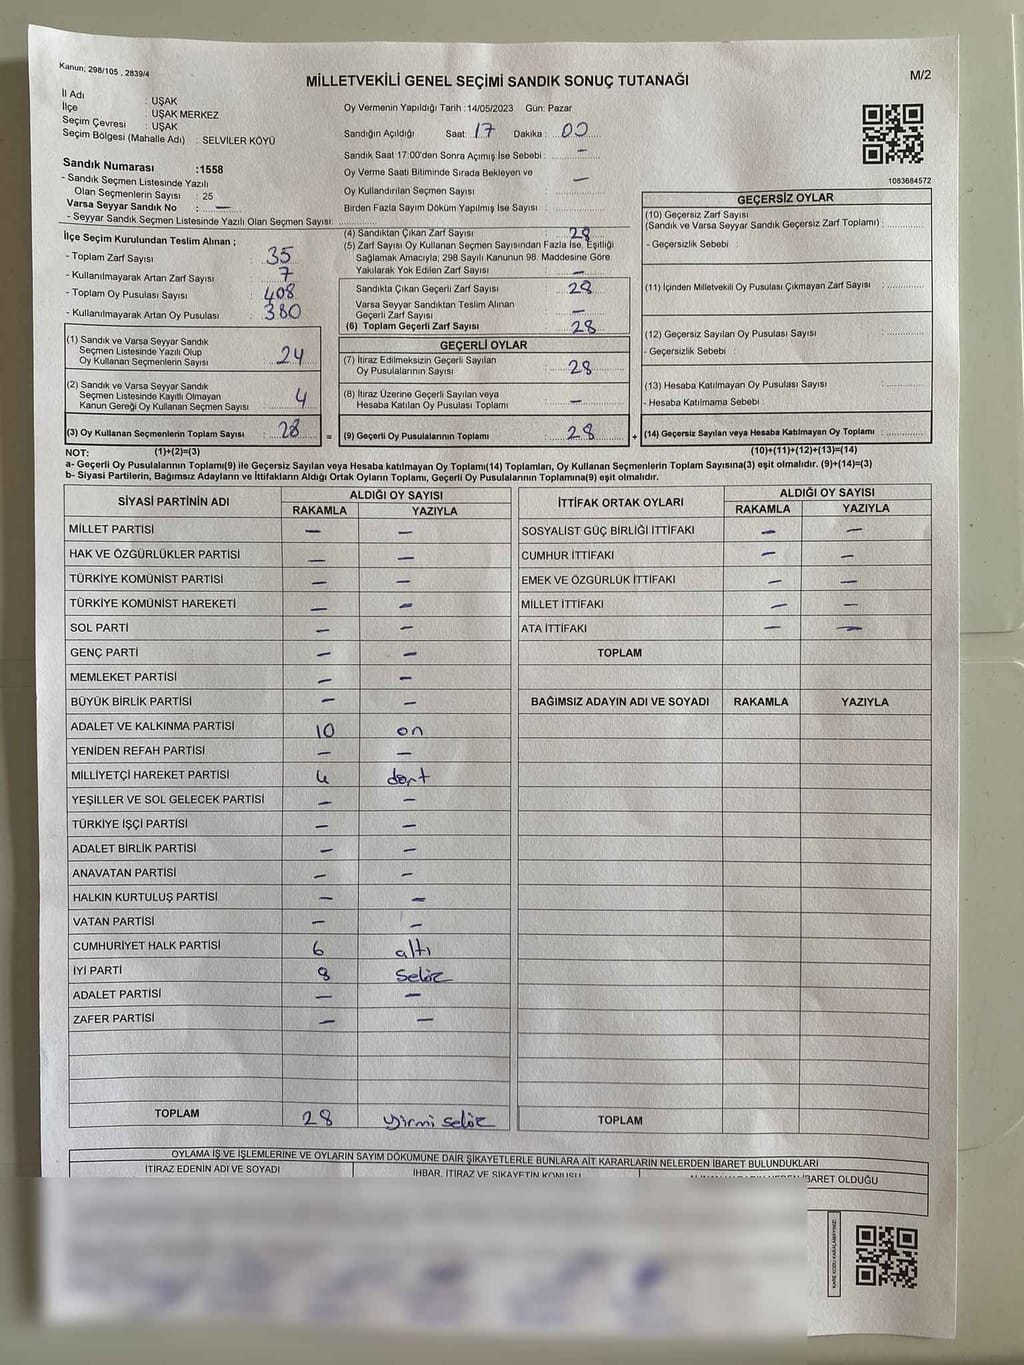 Kanun: 298/105 , 2839/4
MİLLETVEKİLİ GENEL SEÇİMİ SANDIK SONUÇ TUTANAĞI
M/2
İl Adı : UŞAK
İlçe : UŞAK MERKEZ
Seçim Çevresi : UŞAK
Seçim Bölgesi (Mahalle Adı) : SELVİLER KÖYÜ
Sandık Numarası :1558
- Sandık Seçmen Listesinde Yazılı
Olan Seçmenlerin Sayısı : 25
Varsa Seyyar Sandık No : —
- Seyyar Sandık Seçmen Listesinde Yazılı Olan Seçmen Sayısı:
Oy Vermenin Yapıldığı Tarih :14/05/2023 Gün: Pazar
Sandığın Açıldığı Saat: 17 Dakika : 00
Sandık Saat 17:00'den Sonra Açımış İse Sebebi : —
Oy Verme Saati Bitiminde Sırada Bekleyen ve
Oy Kullandırılan Seçmen Sayısı : —
Birden Fazla Sayım Döküm Yapılmış İse Sayısı :
1083684572
İlçe Seçim Kurulundan Teslim Alınan ;
- Toplam Zarf Sayısı : 35
- Kullanılmayarak Artan Zarf Sayısı : 7
- Toplam Oy Pusulası Sayısı : 408
- Kullanılmayarak Artan Oy Pusulası : 380
(1) Sandık ve Varsa Seyyar Sandık
Seçmen Listesinde Yazılı Olup
Oy Kullanan Seçmenlerin Sayısı : 24
(2) Sandık ve Varsa Seyyar Sandık
Seçmen Listesinde Kayıtlı Olmayan
Kanun Gereği Oy Kullanan Seçmen Sayısı : 4
(3) Oy Kullanan Seçmenlerin Toplam Sayısı : 28
(4) Sandıktan Çıkan Zarf Sayısı : 28
(5) Zarf Sayısı Oy Kullanan Seçmen Sayısından Fazla İse, Eşitliği
Sağlamak Amacıyla; 298 Sayılı Kanunun 98. Maddesine Göre
Yakılarak Yok Edilen Zarf Sayısı : —
Sandıkta Çıkan Geçerli Zarf Sayısı : 28
Varsa Seyyar Sandıktan Teslim Alınan
Geçerli Zarf Sayısı : —
(6) Toplam Geçerli Zarf Sayısı : 28
GEÇERLİ OYLAR
(7) İtiraz Edilmeksizin Geçerli Sayılan
Oy Pusulalarının Sayısı : 28
(8) İtiraz Üzerine Geçerli Sayılan veya
Hesaba Katılan Oy Pusulası Toplamı : —
= (9) Geçerli Oy Pusulalarının Toplamı : 28
GEÇERSİZ OYLAR
(10) Geçersiz Zarf Sayısı
(Sandık ve Varsa Seyyar Sandık Geçersiz Zarf Toplamı) :
- Geçersizlik Sebebi :
(11) İçinden Milletvekili Oy Pusulası Çıkmayan Zarf Sayısı :
(12) Geçersiz Sayılan Oy Pusulası Sayısı :
- Geçersizlik Sebebi
(13) Hesaba Katılmayan Oy Pusulası Sayısı :
- Hesaba Katılmama Sebebi :
+ (14) Geçersiz Sayılan veya Hesaba Katılmayan Oy Toplamı :
NOT: (1)+(2)=(3) (10)+(11)+(12)+(13)=(14)
a- Geçerli Oy Pusulalarının Toplamı(9) ile Geçersiz Sayılan veya Hesaba katılmayan Oy Toplamı(14) Toplamları, Oy Kullanan Seçmenlerin Toplam Sayısına(3) eşit olmalıdır. (9)+(14)=(3)
b- Siyasi Partilerin, Bağımsız Adayların ve İttifakların Aldığı Ortak Oyların Toplamı, Geçerli Oy Pusulalarının Toplamına(9) eşit olmalıdır.
SİYASİ PARTİNİN ADI ALDIĞI OY SAYISI
RAKAMLA YAZIYLA
MİLLET PARTİSİ — —
HAK VE ÖZGÜRLÜKLER PARTİSİ — —
TÜRKİYE KOMÜNİST PARTİSİ — —
TÜRKİYE KOMÜNİST HAREKETİ — —
SOL PARTİ — —
GENÇ PARTİ — —
MEMLEKET PARTİSİ — —
BÜYÜK BİRLİK PARTİSİ — —
ADALET VE KALKINMA PARTİSİ 10 on
YENİDEN REFAH PARTİSİ — —
MİLLİYETÇİ HAREKET PARTİSİ 4 dört
YEŞİLLER VE SOL GELECEK PARTİSİ — —
TÜRKİYE İŞÇİ PARTİSİ — —
ADALET BİRLİK PARTİSİ — —
ANAVATAN PARTİSİ — —
HALKIN KURTULUŞ PARTİSİ — —
VATAN PARTİSİ — —
CUMHURİYET HALK PARTİSİ 6 altı
İYİ PARTİ 8 Sekiz
ADALET PARTİSİ — —
ZAFER PARTİSİ — —
TOPLAM 28 yirmi sekiz
İTTİFAK ORTAK OYLARI ALDIĞI OY SAYISI
RAKAMLA YAZIYLA
SOSYALİST GÜÇ BİRLİĞİ İTTİFAKI — —
CUMHUR İTTİFAKI — —
EMEK VE ÖZGÜRLÜK İTTİFAKI — —
MİLLET İTTİFAKI — —
ATA İTTİFAKI — —
TOPLAM
BAĞIMSIZ ADAYIN ADI VE SOYADI RAKAMLA YAZIYLA
TOPLAM
OYLAMA İŞ VE İŞLEMLERİNE VE OYLARIN SAYIM DÖKÜMÜNE DAİR ŞİKAYETLERLE BUNLARA AİT KARARLARIN NELERDEN İBARET BULUNDUKLARI
İTİRAZ EDENİN ADI VE SOYADI
İHBAR, İTİRAZ VE ŞİKAYETİN KONUSU
İBARET OLDUĞU
KARE KODU KARALAMAYINIZ!